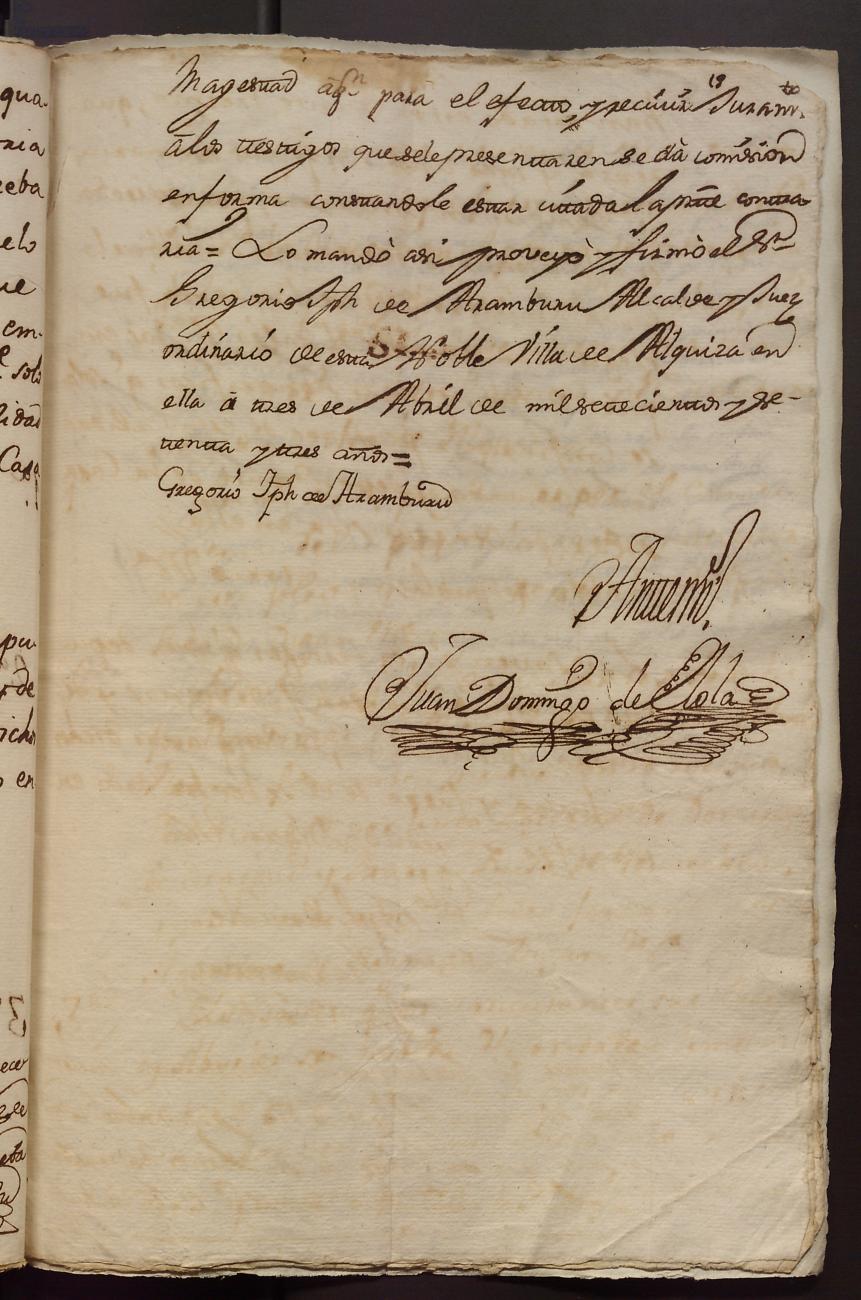 19
Magestad aqn para el efecto, y recivir Juramto
â los testigos que se le presentaren se dà comision
en forma constandole estar citada la pte contra-
ria= Lo mandò asi proveyò y firmò el Sr
Gregorio Jph de Aramburu Alcalde y Juez
ordinario de esta Noble Villa de Alquiza en
ella â tres de Abril de mil setecientos y se-
tenta y tres años=
Gregorio Jph de Aramburu
Antemi
Juan Domingo de
qua-
ria
eba
elo
ue
em-
solo
lidad
Casa
pu-
de
icho
en